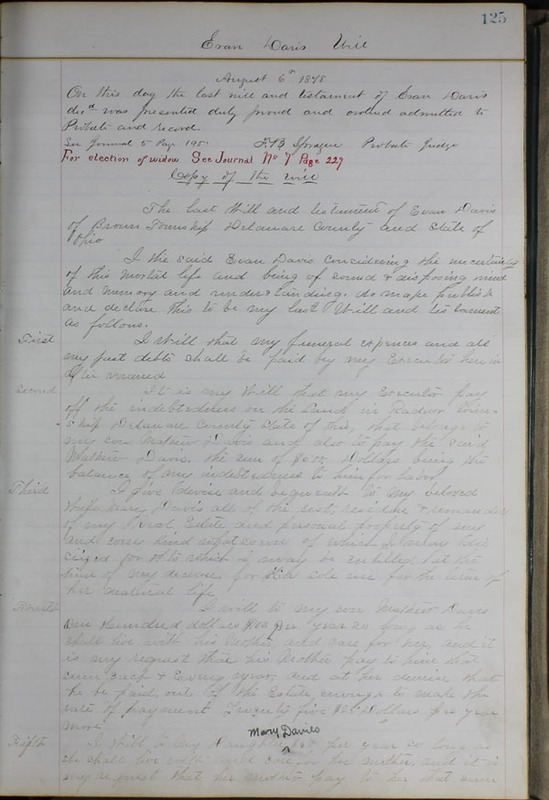 125
Evan Davis Will
August 6th 1878
On this day the last will and testament of Evan Davis
decd was presented duly proved and ordered admitted to
Probate and record.
See Journal 5 Page 195. F B Sprague Probate Judge
For election of widow See Journal No 7 Page 229
Copy of the will
The last Will and testament of Evan Davis
of Brown Township Delaware County and State of
Ohio
I the said Evan Davis Considering the uncertainty
of this mortal life and being of sound & disposing mind
and memory and understanding. do make publish
and declare this to be my last Will and testament
as follows.
First I Will that my funeral expenses and all
my just debts shall be paid by my Executor herein
after named
Second It is my Will that my Executor pay
off the indebtedness on the land in Radnor Town-
ship Delaware County State of Ohio, that belongs to
my son Mathew Davis and also to pay the said
Mathew Davis. the sum of Dollars being the
balance of my indebtedness to him for labor
Third I give devise and bequeath to my beloved
wife Mary Davis all of the rest, residue & remainder
of my Real Estate and personal property of any
and every kind whatsoever of which I may die
seized or to which I may be entitled at the
time of my decease, for her sole use for the term of
her natural life
Fourth I will to my son Mathew Davis
One Hundred dollars per year so long as he
shall live with his Mother, and care for her, and it
is my request that his Mother pay to him that
sum Each & Every year, and at her demise that
he be paid, out of the Estate, enough to make the
rate of payment Twenty five $25 Dollars per year
more
Mary Davies
Fifth I Will to my Daughter per year so long as
she shall live with and care for her mother, and it is
my request that her mother pay to her that sum